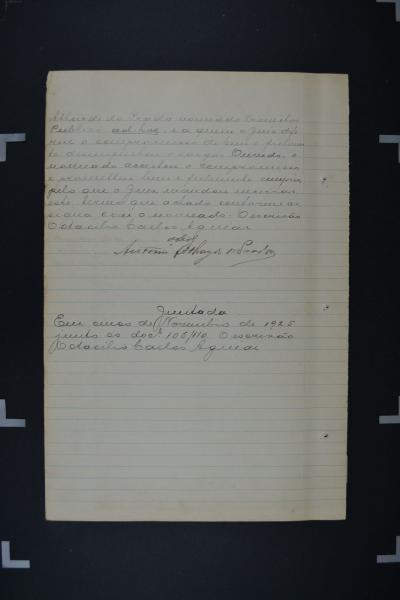 do Prado nomeado Promotor
Publico ad-hoc, e a quem o Juiz defe
riu o compromisso de bem e fielmen
te desempenhar o cargo. Ouvido, o
nomeado acceitou o compromisso
e prometteu bem e fielmente cumprir
pelo que o Juiz mandou lavrar
este termo que achado conforme as
signa com o nomeado. O escrivão
Octacilio Carlos Aguiar
Antonio do Prado
Juntada
Em onze de Novembro de 1925
junto os docs. 105/110. O escrivão
Octacilio Carlos Aguiar